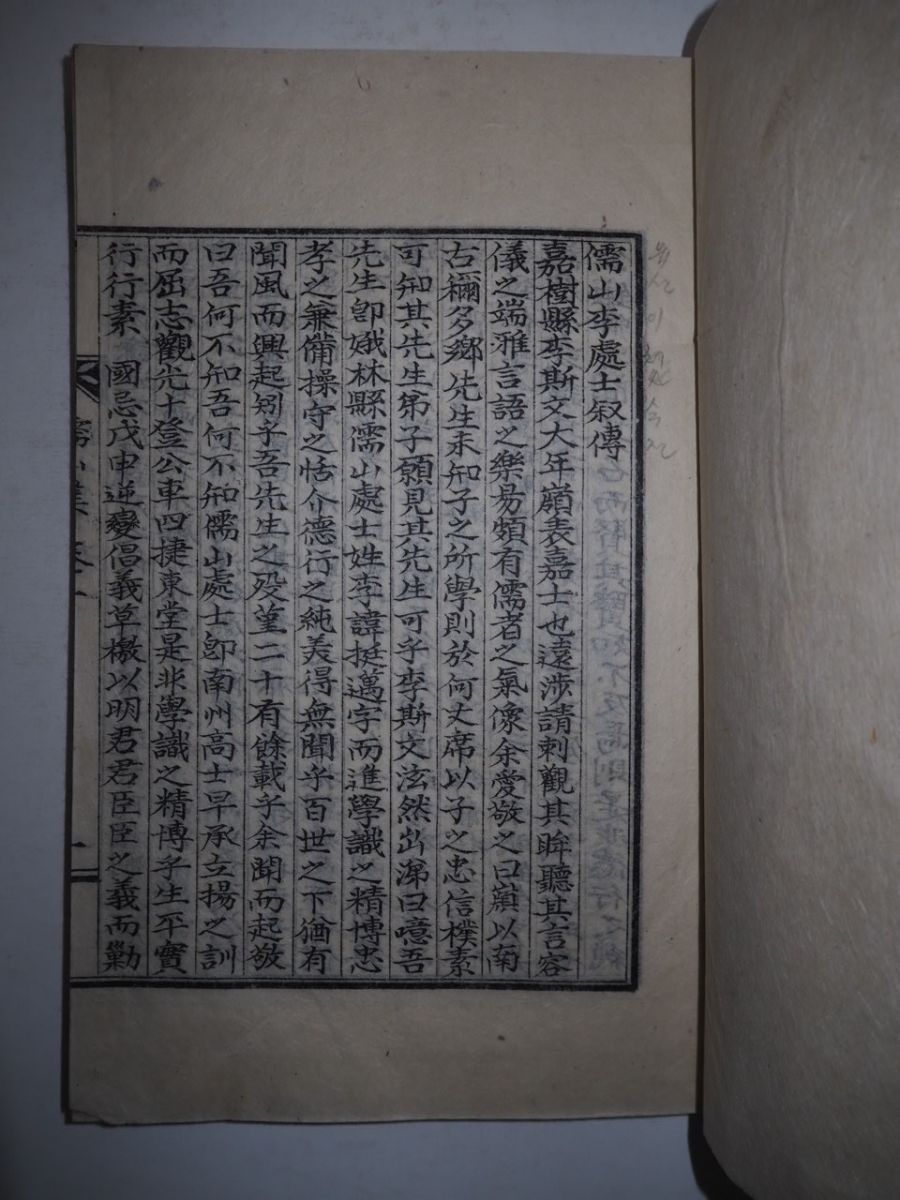 儒山李處士叙傳
嘉樹縣李斯文大年嶺表嘉士也遠涉請刺觀其眸聽其言容
儀之端雅言語之樂易頗有儒者之氣像余愛敬之曰嶺以南
古稱多鄕先生未知子之所學則於何丈席以子之忠信樸素
可知其先生弟子願見其先生可乎李斯文泫然出涕曰噫吾
先生卽娥林縣儒山處士姓李諱挺邁字而進學識之精博忠
孝之兼備操守之恬介德行之純美得無聞乎百世之下猶有
聞風而興起矧乎吾先生之歿菫二十有餘載乎余聞而起敬
曰吾何不知吾何不知儒山處士卽南州高士早承立揚之訓
而屈志觀光十登公車四捷東堂是非學識之精博乎生平實
行行素 國忌戊申逆變倡義草檄以明君君臣臣之義而勦